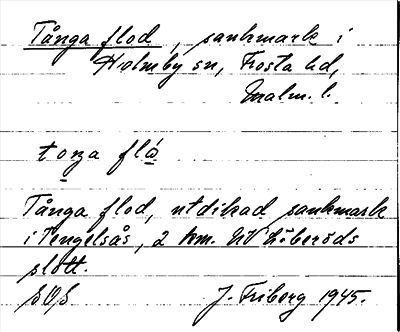 Tånga flod, sankmark i
Holmby sn, Frosta hd,
Malm. l.
tonga flå
Tånga flod, utdikad sankmark
i Tengelsås, 2 km. NV Löberöds
slott.
SOS J. Friberg 1945.